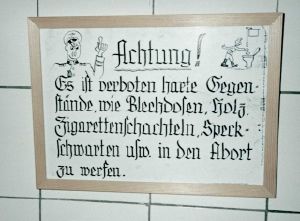 Achtung!
Es ist verboten harte Gegen-
stände, wie Blechdosen, Holz,
Zigarettenschachteln, Speck-
schwarten usw. in den Abort
zu werfen.